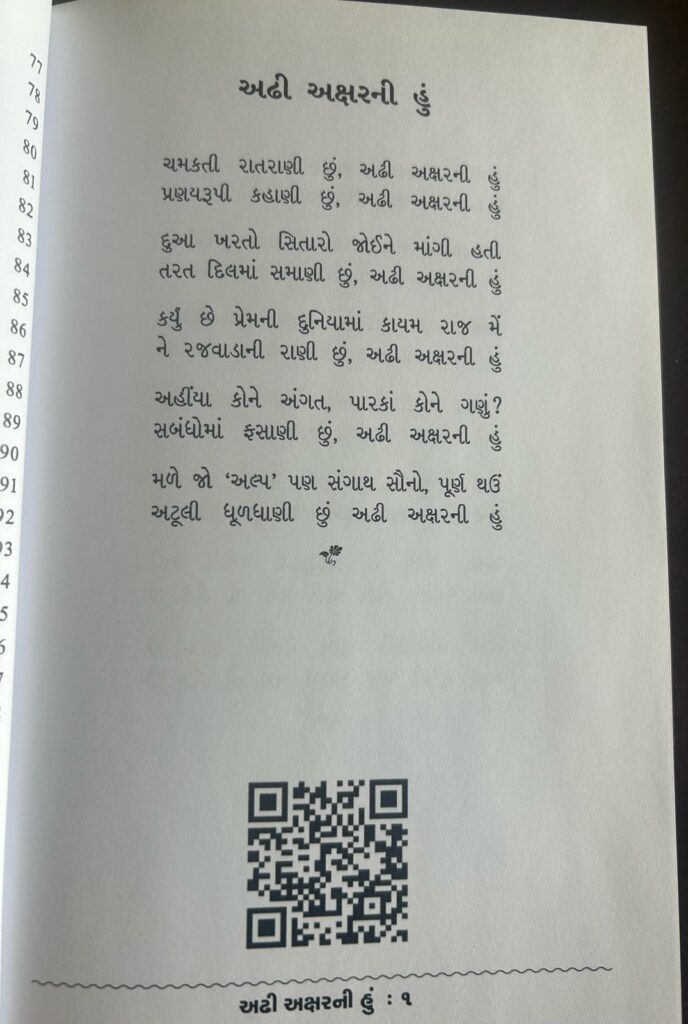 77
78
79
80
81
82
83
84
85
86
87
88
89
90
91
92
93
અઢી અક્ષરની હું
ચમકતી રાતરાણી છું, અઢી અક્ષરની હું
પ્રણયરૂપી કહાણી છું, અઢી અક્ષરની હું
દુઆ ખરતો સિતારો જોઈને માંગી હતી
તરત દિલમાં સમાણી છું, અઢી અક્ષરની હું
કર્યું છે પ્રેમની દુનિયામાં કાયમ રાજ મેં
ને રજવાડાની રાણી છું, અઢી અક્ષરની હું
અહીંયા કોને અંગત, પારકાં કોને ગણું?
સબંધોમાં ફસાણી છું, અઢી અક્ષરની હું
મળે જો ‘અલ્પ’ પણ સંગાથ સૌનો, પૂર્ણ થઉં
અટૂલી ધૂળધાણી છું અઢી અક્ષરની હું
અઢી અક્ષરની હું : ૧